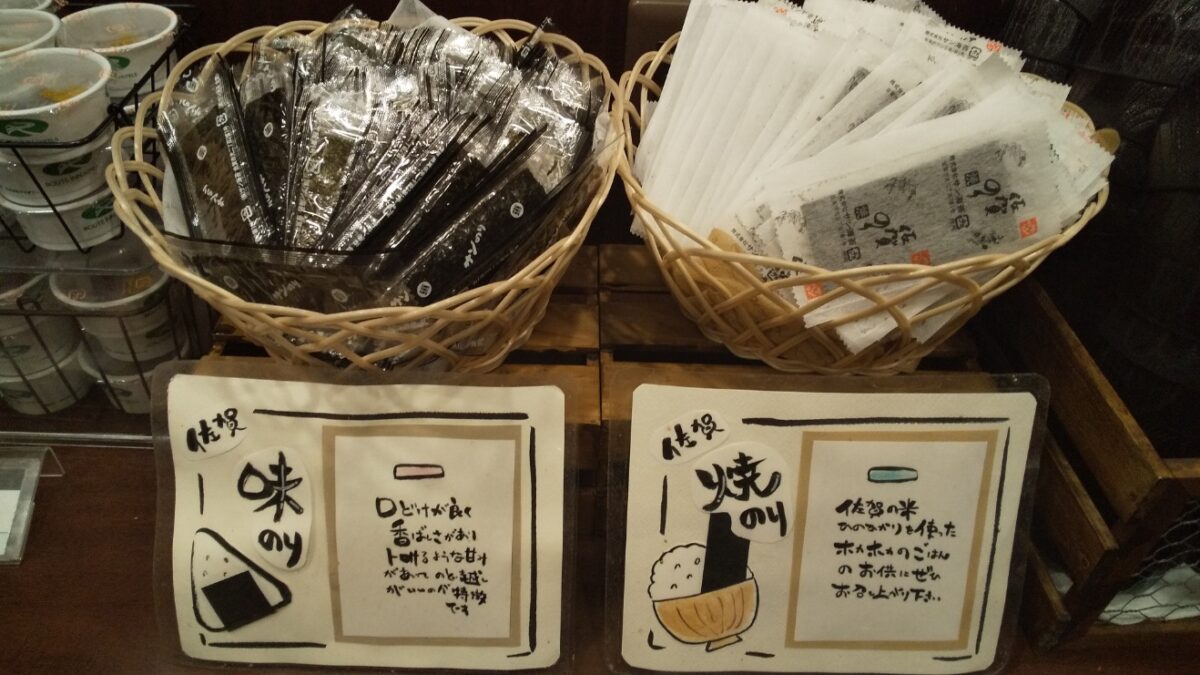 佐賀
味
のり
口どけが良く
香ばしさがあり
トロけるような甘汁
があって のど越し
がいいのが特徴
です
佐賀
焼
のり
佐賀の米
ひのひかりを使った
ホカホカのごはん
のお供にぜひ
お召し上がり下さい
佐賀
のり
ROUTE INN HOTELS